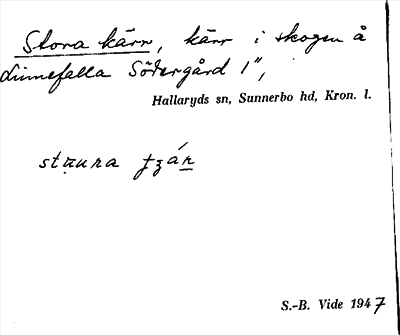 Stora kärr, kärr i skogen å
Linnefalla Södergård 1",
Hallaryds sn, Sunnerbo hd, Kron. l.
stau̯ra
S.-B. Vide 1947